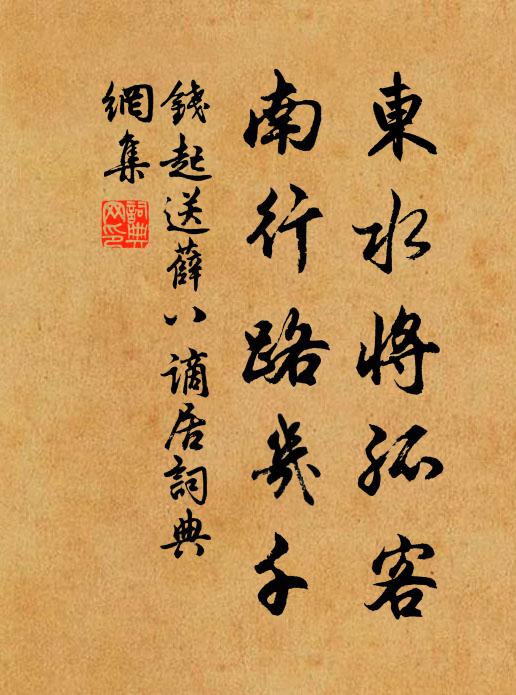 東水將孤客
南行路幾千
錢起送薛八謫居詞典
網集
詞典
网印